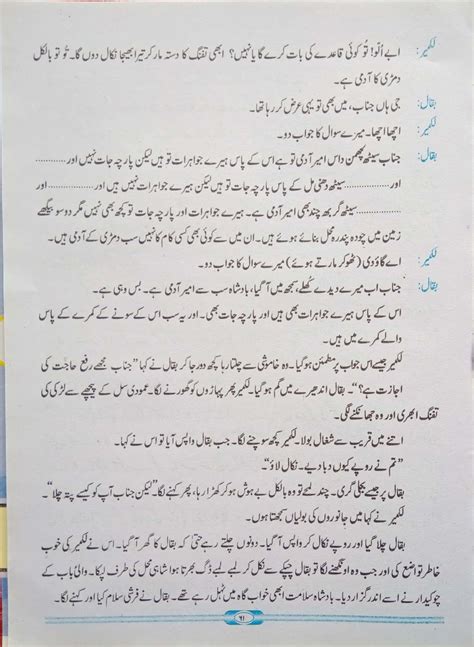 لکھیر: ابے اُلّو! تُو کوئی قاعدے کی بات کرے گا یا نہیں؟ ابھی تفنگ کا دستہ مار کر تیرا بھیجا نکال دوں گا۔ تُو تو بالکل
دمڑی کا آدمی ہے۔
بقال: جی ہاں جناب، میں بھی تو یہی عرض کر رہا تھا۔
لکھیر: اچھا اچھا۔ میرے سوال کا جواب دو۔
بقال: جناب سیٹھ پچھمن داس امیر آدمی تو ہے اس کے پاس ہیرے جواہرات تو ہیں لیکن پارچہ جات نہیں اور ............
اور .................. سیٹھ دھنی مل کے پاس پارچہ جات تو ہیں لیکن ہیرے جواہرات نہیں ہیں اور ..................
.................. سیٹھ گربھ چند بھی امیر آدمی ہے۔ ہیرے جواہرات اور پارچہ جات تو کچھ بھی نہیں مگر دو سو بیگھے
زمین میں چودہ پندرہ محل بنائے ہوئے ہیں۔ ان میں سے کوئی بھی کسی کام کا نہیں سب دمڑی کے آدمی ہیں۔
لکھیر: اے گاؤدی (ٹھوکر مارتے ہوئے) میرے سوال کا جواب دو۔
بقال: جناب اب میرے دیدے کُھلے، سمجھ میں آ گیا۔ بادشاہ سب سے امیر آدمی ہے۔ بس وہی ہے۔
اس کے پاس ہیرے جواہرات بھی ہیں اور پارچہ جات بھی۔ اور یہ سب اس کے سونے کے کمرے کے پاس
والے کمرے میں ہیں۔
لکھیر جیسے اس جواب پر مطمئن ہو گیا۔ وہ خاموشی سے چلتا رہا کچھ دور جا کر بقال نے کہا ”جناب مجھے رفع حاجت کی
اجازت ہے؟“۔ بقال اندھیرے میں گم ہو گیا۔ لکھیر پھر پہاڑوں کو گھورنے لگا۔ عمودی سل کے پیچھے سے لڑکی کی
تفنگ ابھری اور وہ جھانکنے لگی۔
اتنے میں قریب سے شغال بولا۔ لکھیر کچھ سوچنے لگا۔ جب بقال واپس آیا تو اس نے کہا۔
”تم نے روپے کیوں دبا دیے۔ نکال لاؤ۔“
بقال پر جیسے بجلی گری۔ چند لمحے تو وہ بالکل بے ہوش ہو کر کھڑا رہا، پھر کہنے لگا۔ ”لیکن جناب آپ کو کیسے پتہ چلا“۔
لکھیر نے کہا میں جانوروں کی بولیاں سمجھتا ہوں۔
بقال چلا گیا اور روپے نکال کر واپس آ گیا۔ دونوں چلتے رہے حتٰی کہ بقال کا گھر آ گیا۔ اس نے لکھیر کی خوب
خاطر تواضع کی اور جب وہ اونگھنے لگا تو بقال چپکے سے نکل کر لمبے لمبے ڈگ بھرتا ہوا شاہی محل کی طرف لپکا۔ والی باب کے
چوکیدار نے اسے اندر گزار دیا۔ بادشاہ سلامت ابھی خواب گاہ میں ٹہل رہے تھے۔ بقال نے فرشی سلام کیا اور کہنے لگا۔
۹۱